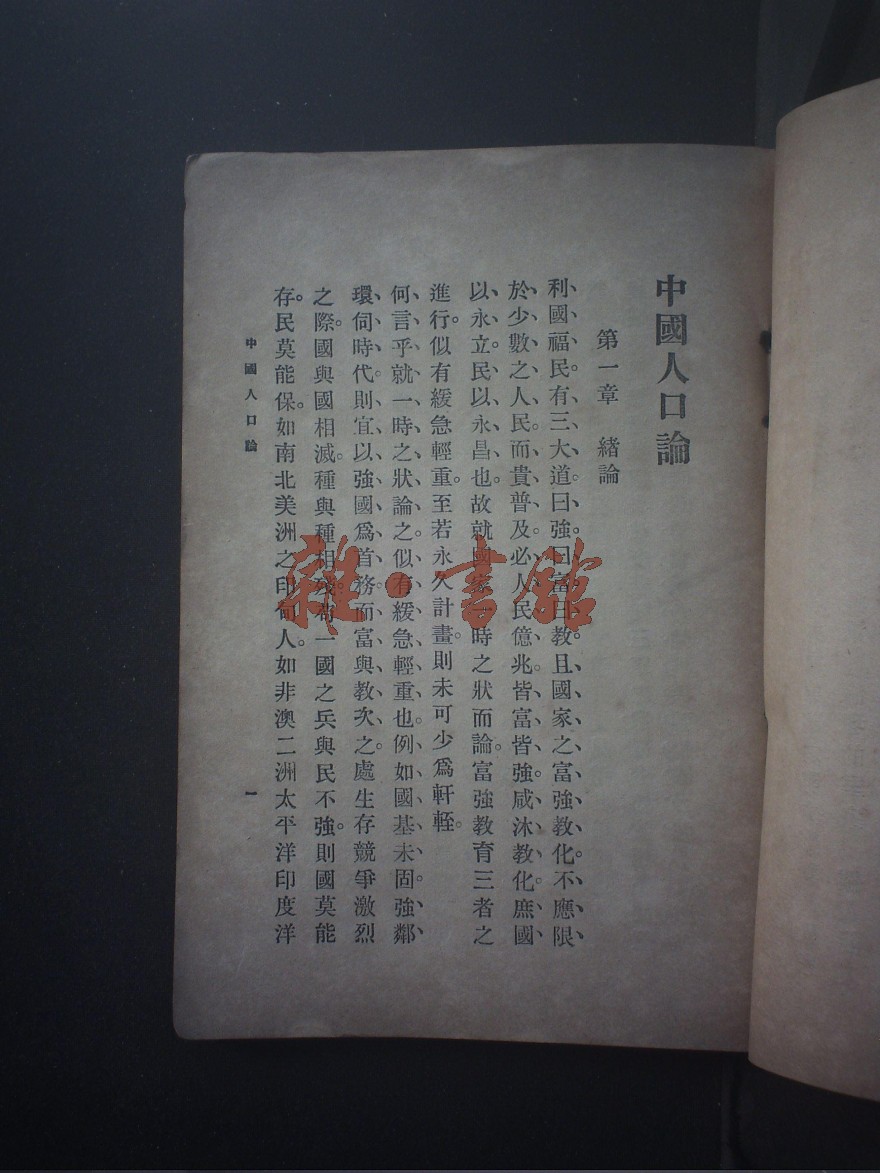 中國人口論
第一章 緒論
利國福民。有三大道。曰強。曰富。曰教。且國家之富強教化。不應限
於少數之人民。而貴普及。必人民億兆。皆富皆強。咸沐教化。庶國
以永立。民以永昌也。故就國家一時之狀而論。富強教育三者之
進行。似有緩急輕重。至若永久計畫。則未可少爲軒輊。
何言乎就一時之狀論之。似有緩急輕重也。例如國基未固。強鄰
環伺時代。則宜以強國爲首務。而富與教次之。處生存競爭激烈
之際。國與國相滅。種與種相殘。苟一國之兵與民不強。則國莫能
存。民莫能保。如南北美洲之印甸人。如非澳二洲太平洋印度洋
中國人口論
一
雜·書館